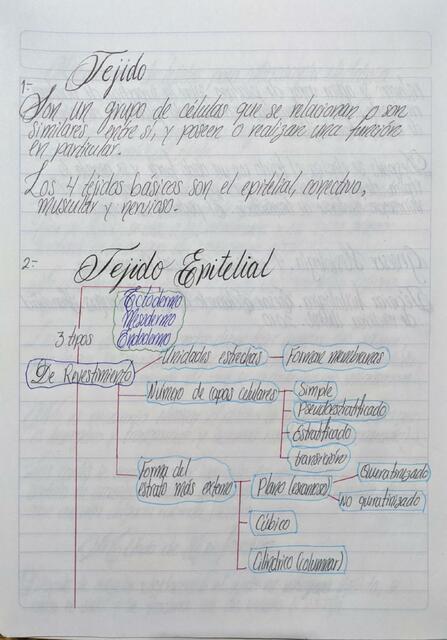 Tejido
1:-
Son un grupo de células que se relacionan o son
similares, entre si, y poseen o realizan una función
en particular.
Los 4 tejidos básicos son el epitelial, conectivo,
muscular y nervioso.
2:-
Tejido Epitelial
Ectodermo
Mesodermo
Endodermo
3 tipos
De Revestimiento
Unidades estrechas
Forman membranas
Número de capas celulares
Simple
Pseudoestratificado
Estratificado
transición
Forma del
estrato más externo
Plano (escamoso)
Queratinizado
No queratinizado
Cúbico
Cilíndrico (columnar)